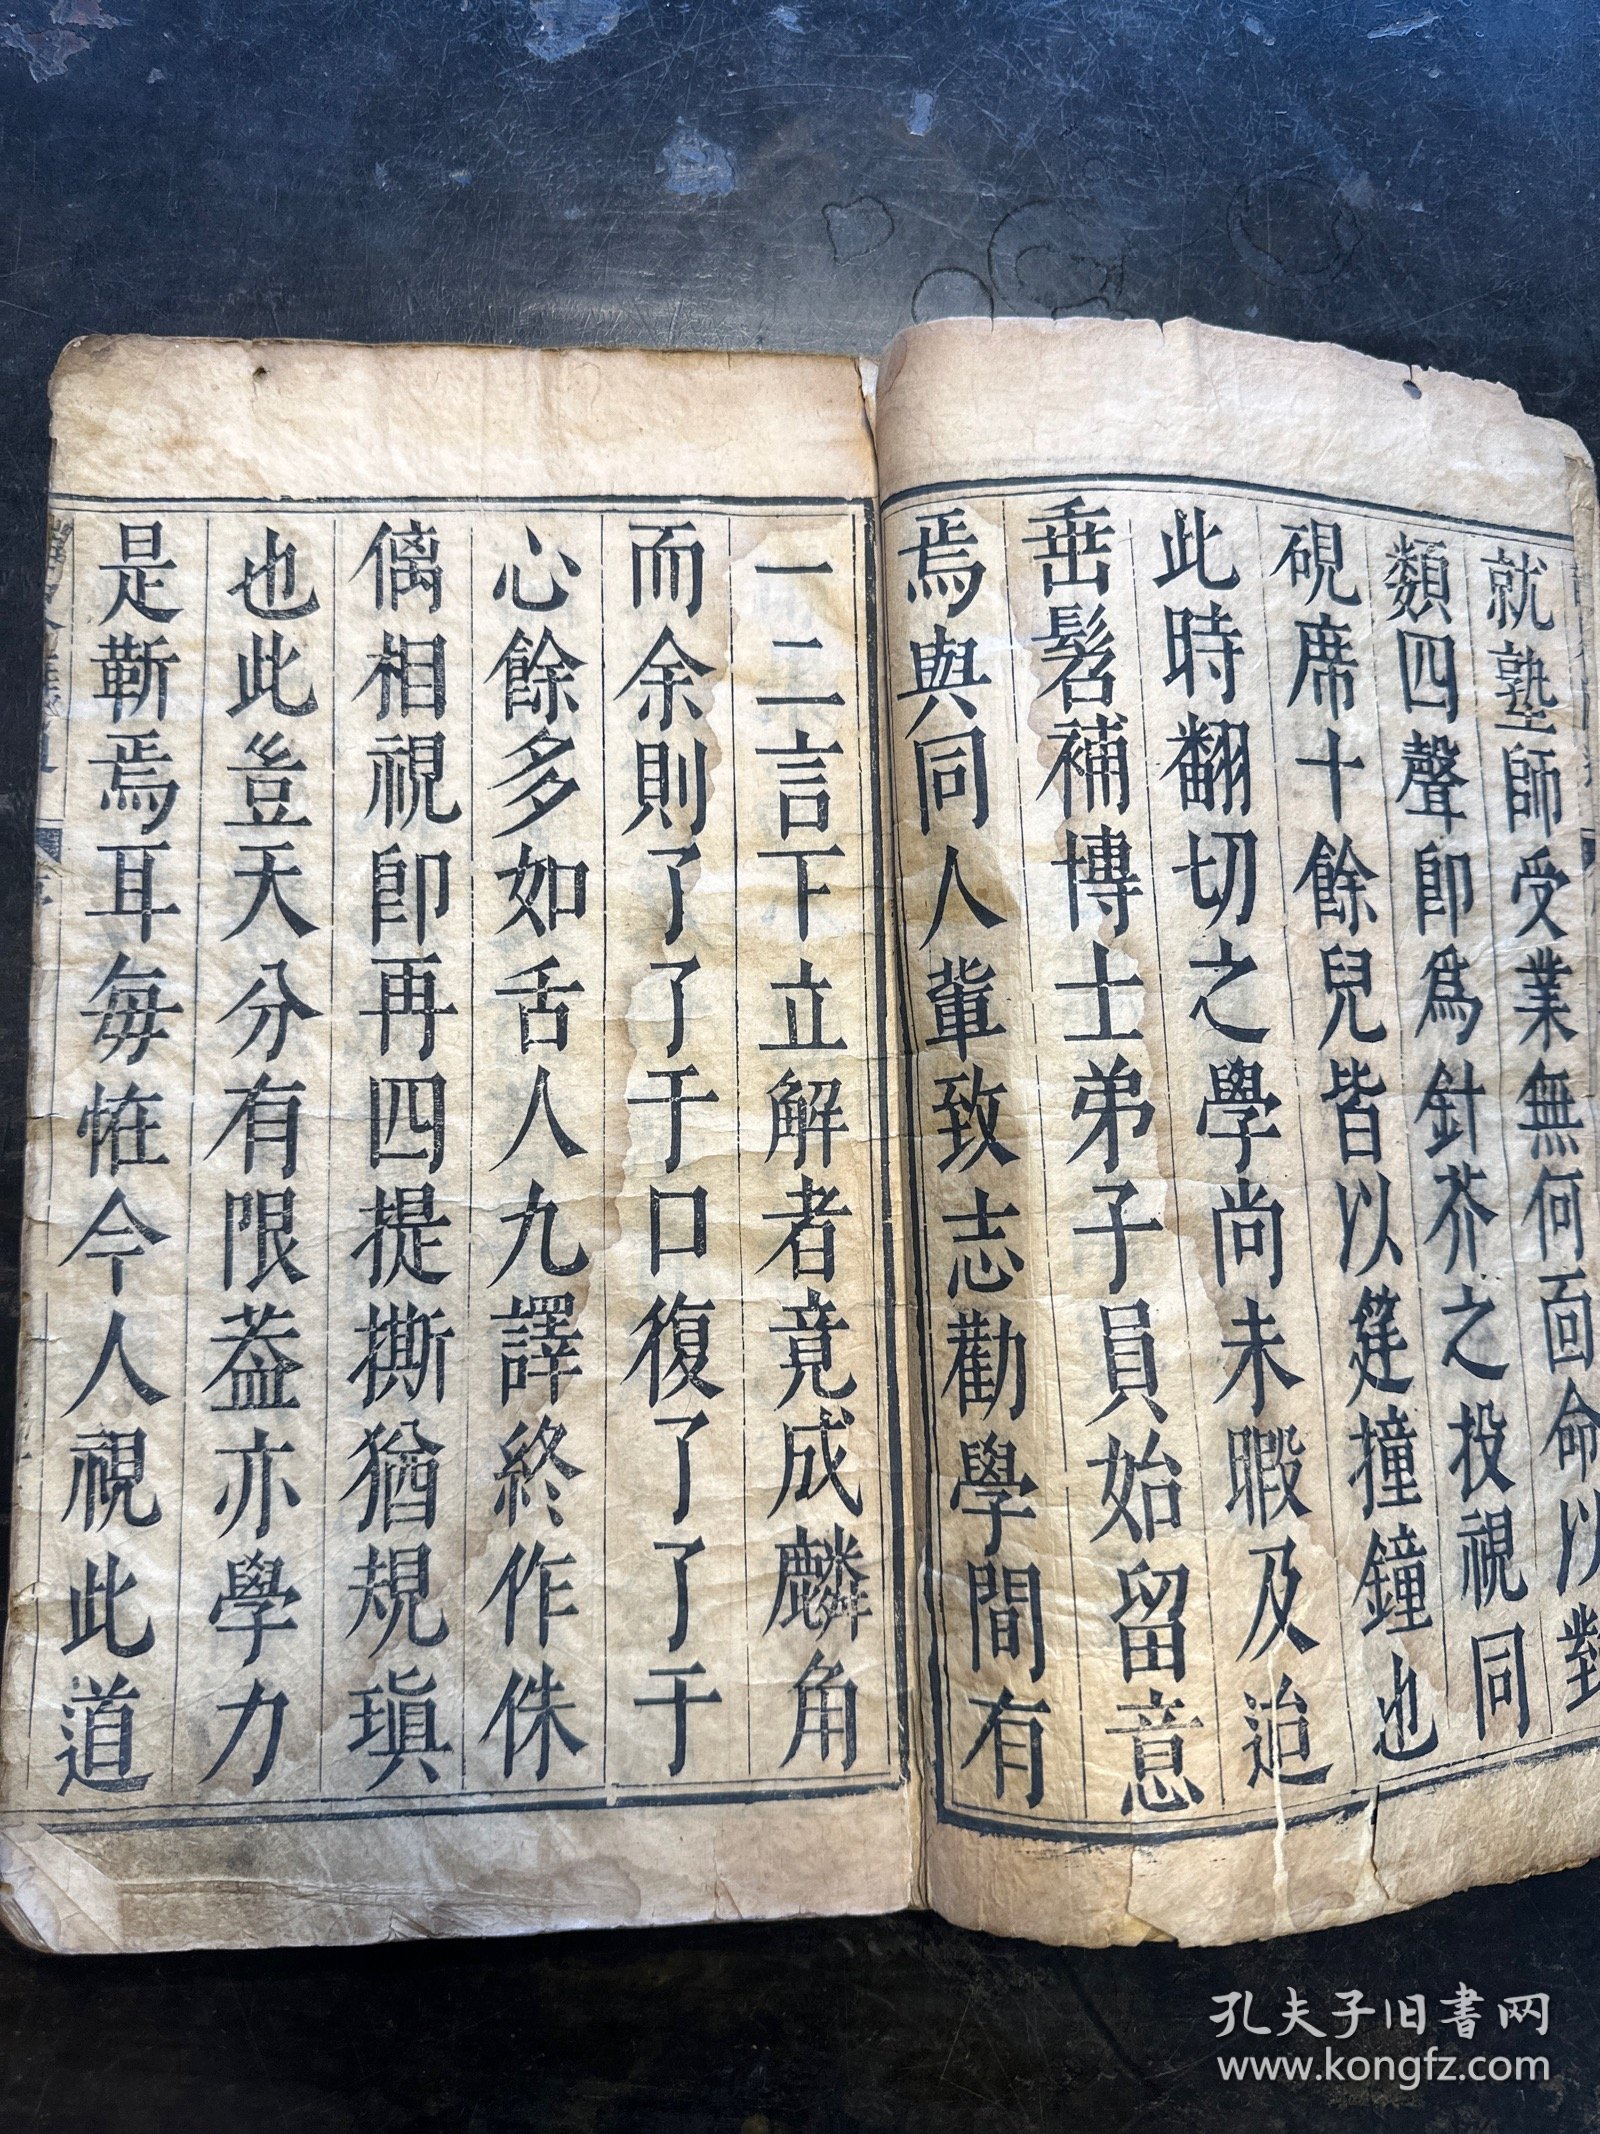 就塾師受業無何面命以對
類四聲卽爲針芥之投視同
硯席十餘兒皆以筳撞鐘也
此時翻切之學尚未暇及迨
垂髫補博士弟子員始留意
焉與同人軰致志勸學間有
一二言下立解者竟成麟角
而余則了了于口復了了于
心餘多如舌人九譯終作侏
偊相視卽再四提撕猶規瑱
也此豈天分有限葢亦學力
是靳焉耳每恠今人視此道
孔夫子旧書网
www.kongfz.com